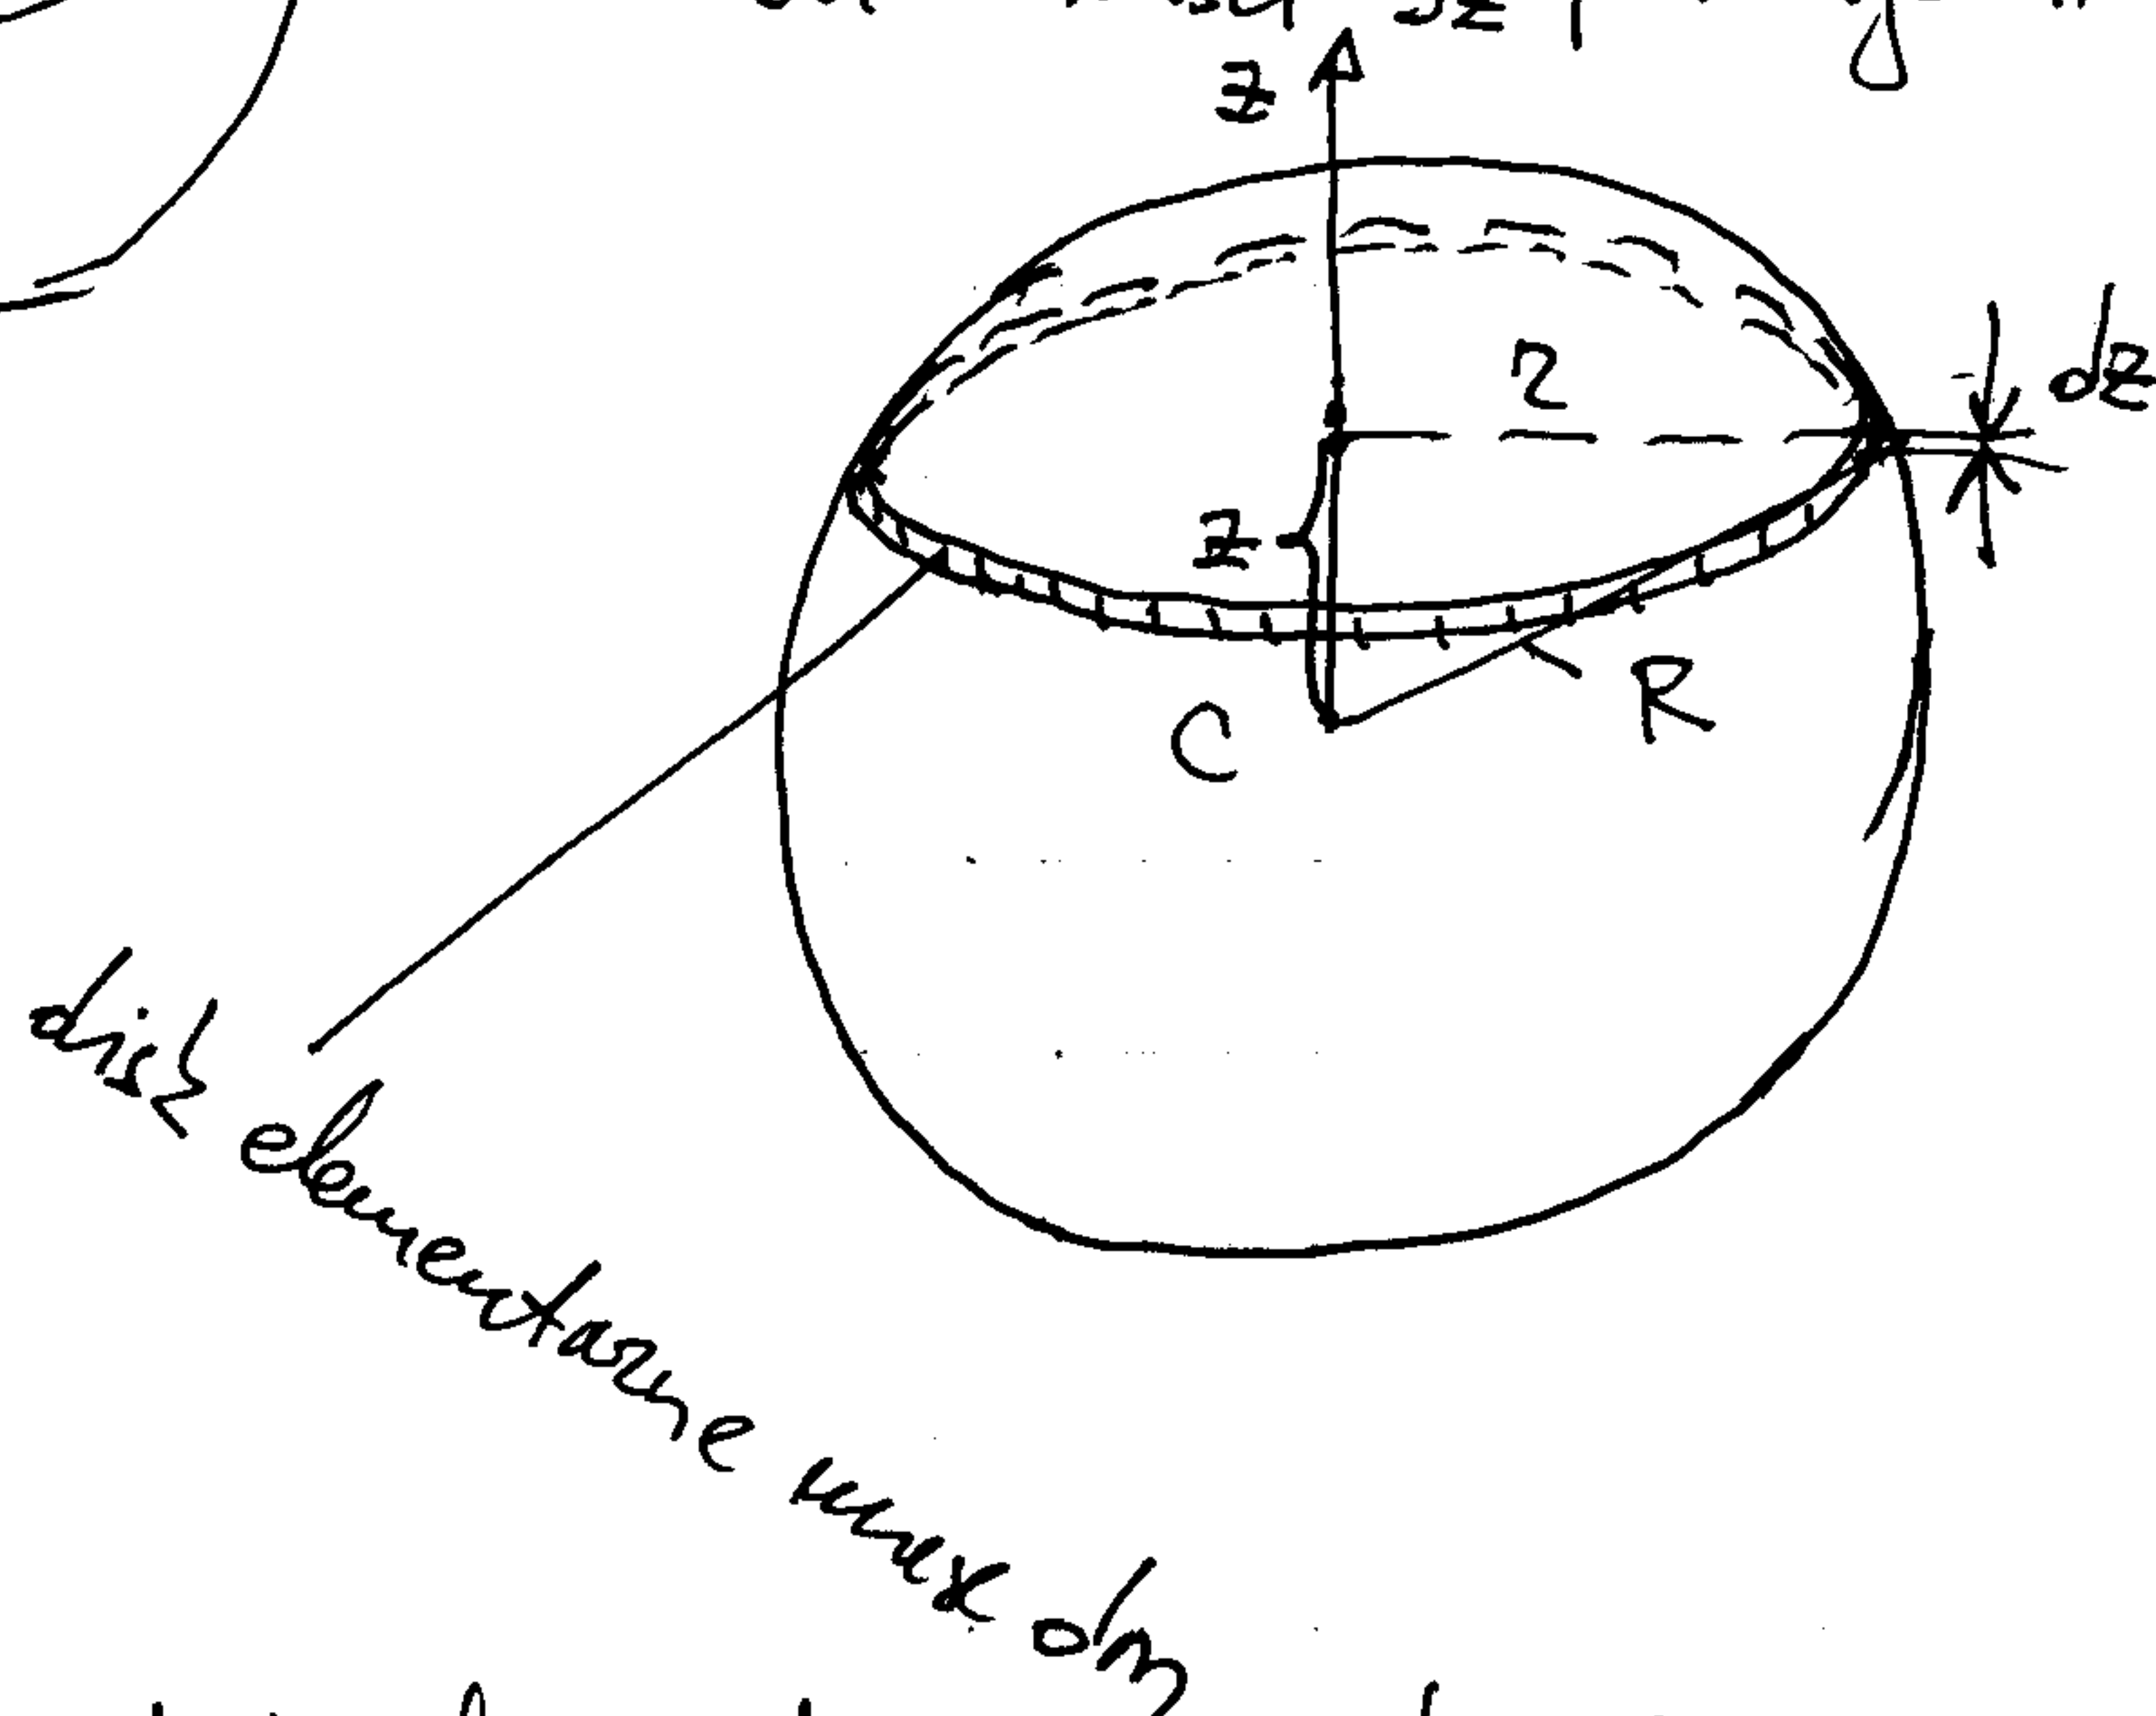 z
r
dz
z
R
C
disk elementarne mase dm